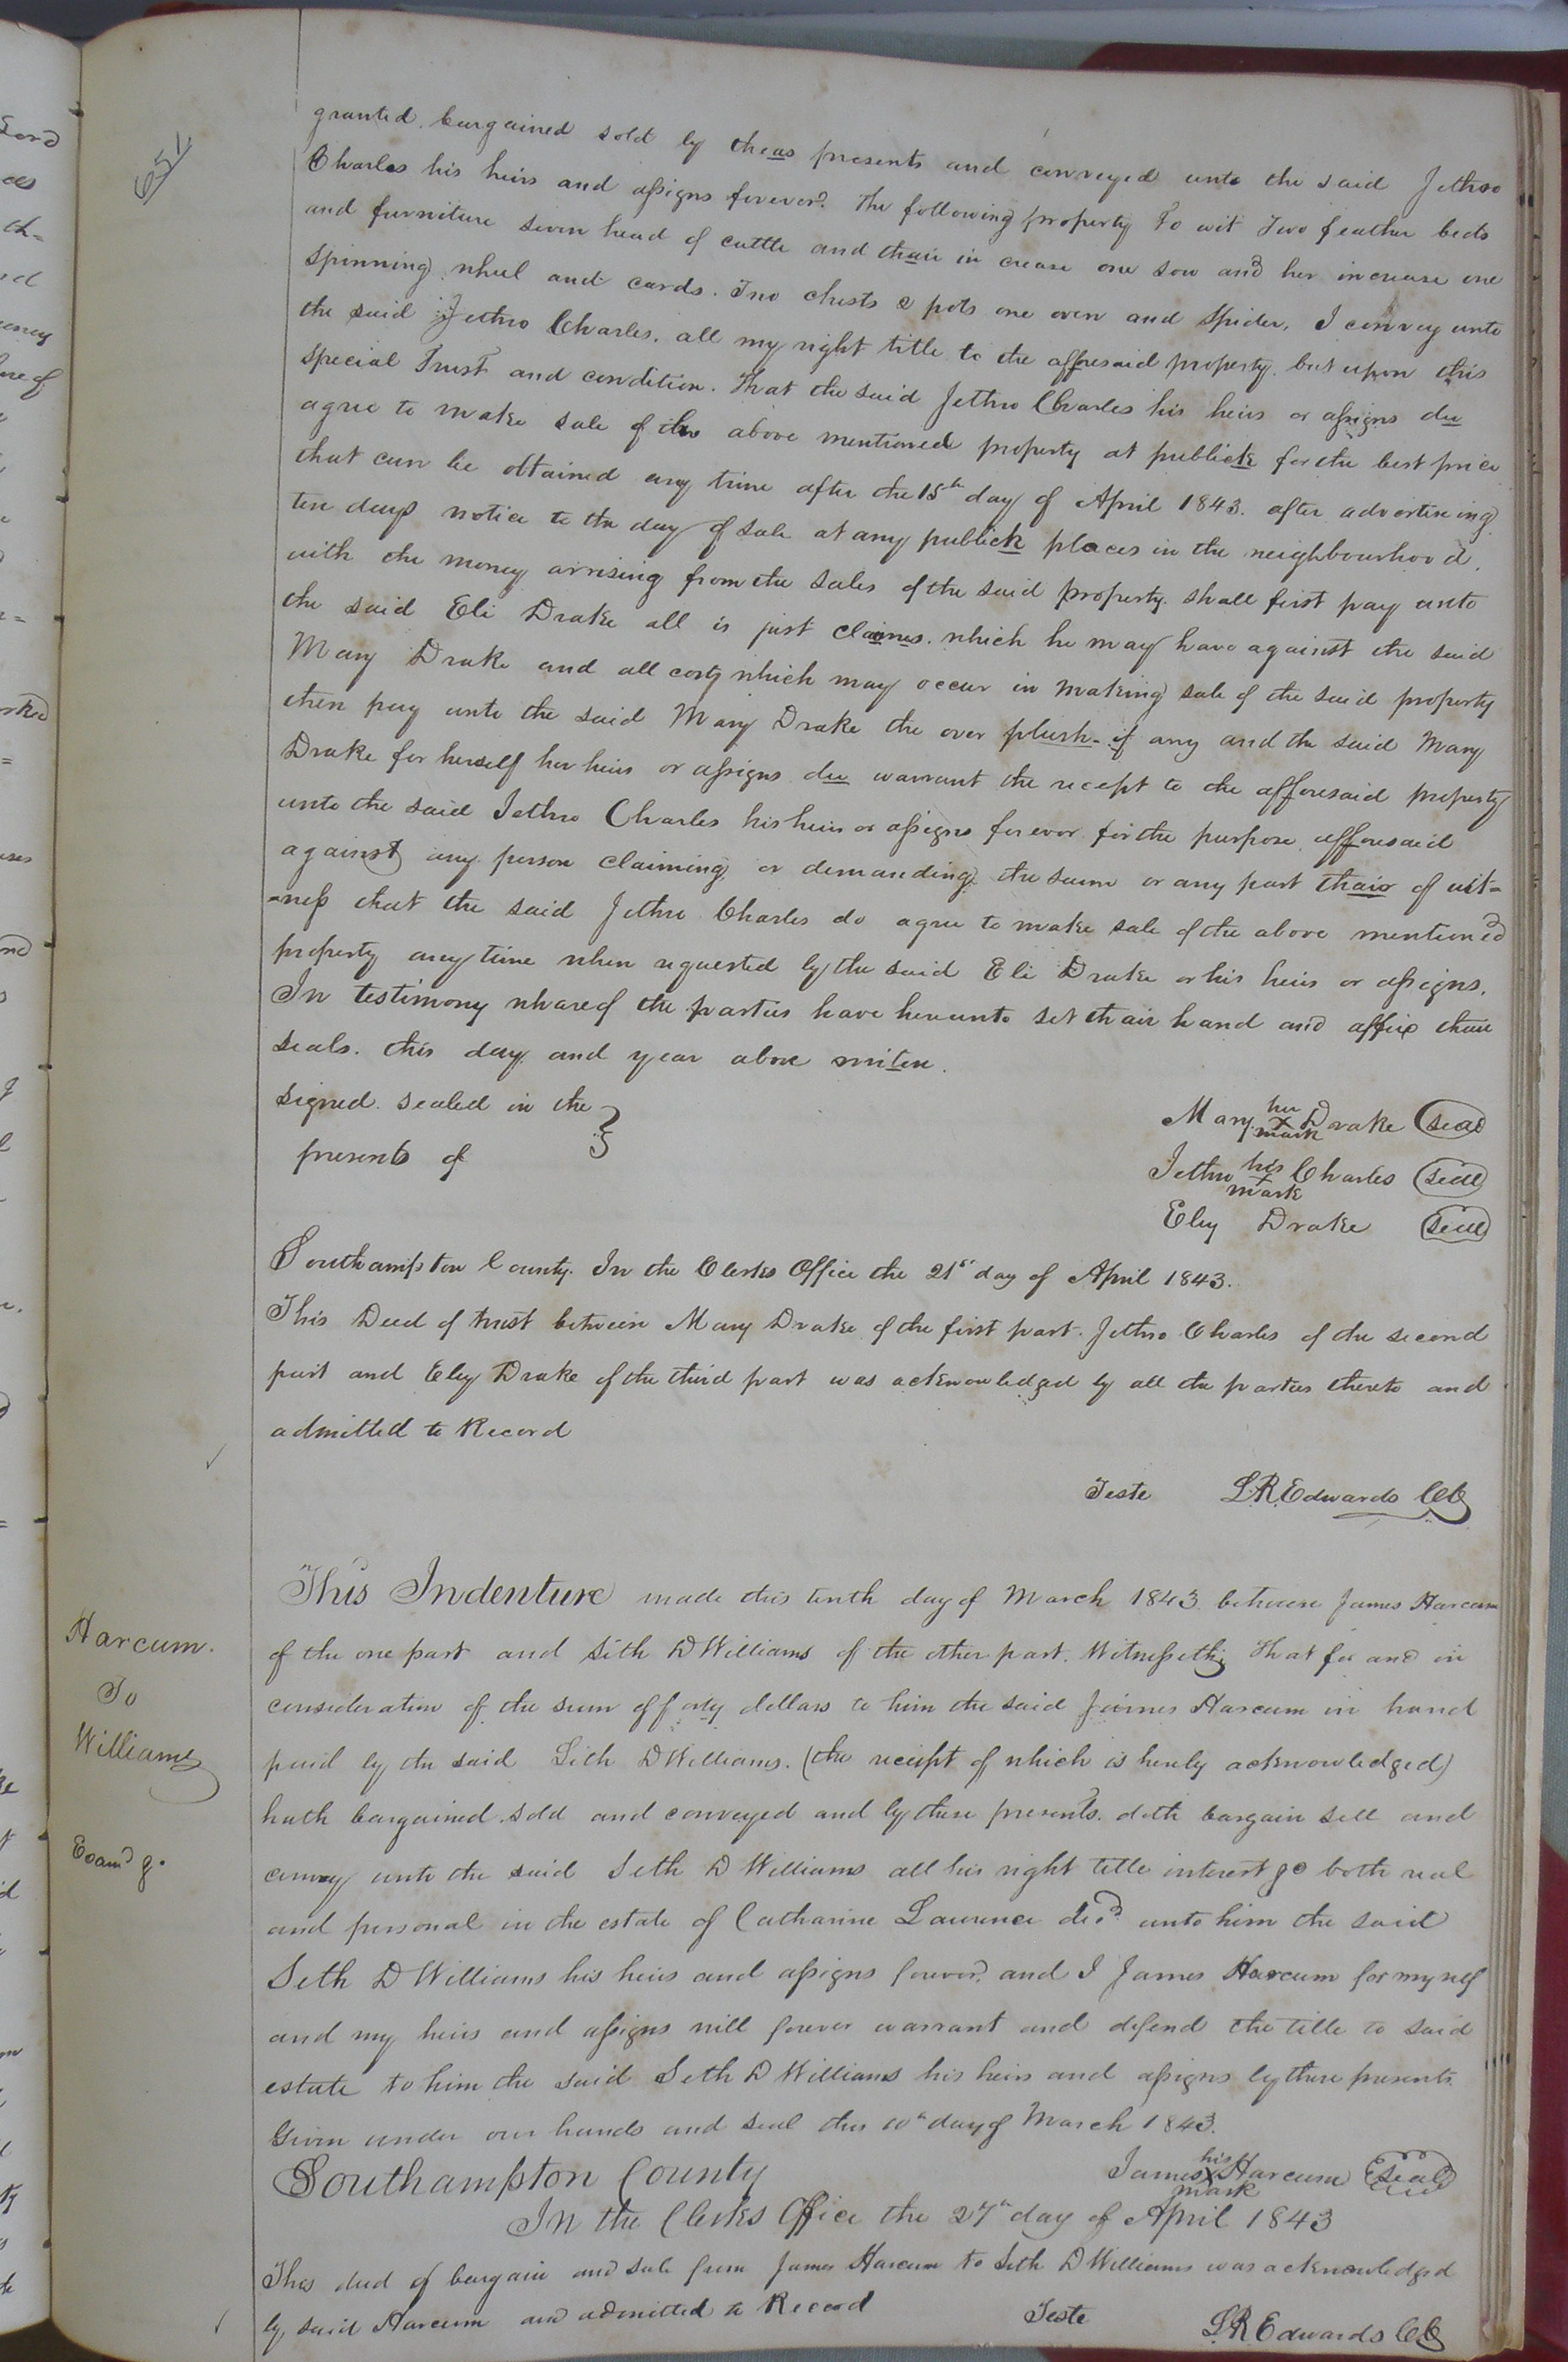 651
granted bargained sold by theas presents and conveyed unto the said Jethro
Charles his heirs and assigns forever. The following property To wit Two feather beds
and furniture seven head of cattle and thair in crease one sow and her increase one
spinning wheel and cards. Two chests 2 pots one oven and spider, I convey unto
the said Jethro Charles, all my right title to the afforesaid property. but upon this
special Trust and condition. That the said Jethro Charles his heirs or assigns du
agree to make sale of the above mentioned property at publick for the best price
that can be obtained any time after the 15th day of April 1843. after advertiseing
ten days notice to the day of sale at any publick places in the neighbourhood.
with the money arrising from the sales of the said property. shall first pay unto
the said Eli Drake all is just claimes. which he may have against the said
Mary Drake and all costs which may occur in making sale of the said property
then pay unto the said Mary Drake the over plush - if any and the said Mary
Drake for herself her heirs or assigns du warrant the recept to the afforesaid property
unto the said Jethro Charles his heirs or assigns for ever for the purpose afforesaid
against any person claiming or demanding the same or any part thair of wit=
=ness that the said Jethro Charles do agree to make sale of the above mentioned
property any time when requested by the said Eli Drake or his heirs or assigns.
In testimony whareof the parties have hereunto set thair hand and affix thair
seals. this day and year above writen.
signed. sealed in the }
presents of
Mary her x mark Drake (seal)
Jethro his x mark Charles (seal)
Eley Drake (seal)
Southampton County. In the Clerks Office the 21st day of April 1843.
This Deed of trust between Mary Drake of the first part. Jethro Charles of the second
part and Eley Drake of the third part was acknowledged by all the parties thereto and
admitted to Record
Teste L.R. Edwards CC
This Indenture made this tenth day of March 1843 between James Harcum
of the one part and Seth D Williams of the other part. Witnesseth; That for and in
consideration of the sum of forty dollars to him the said James Harcum in hand
paid by the said Seth D Williams. (the receipt of which is hereby acknowledged)
hath bargained. sold and conveyed and by these presents. doth bargain sell and
convey unto the said Seth D Williams all his right title interest &c both real
and personal in the estate of Catharine Laurence decd unto him the said
Seth D Williams his heirs and assigns forever. and I James Harcum for myself
and my heirs and assigns will forever warrant and defend the title to said
estate to him the said Seth D Williams his heirs and assigns by these presents.
Given under our hands and seal this 10th day of March 1843.
James his x mark Harcum (Seal)
Harcum.
To
Williams
Examd
Southampton County
In the Clerks Office the 27th day of April 1843
This deed of bargain and sale from James Harcum to Seth D Williams was acknowledged
by said Harcum and admitted to Record Teste L.R. Edwards CC